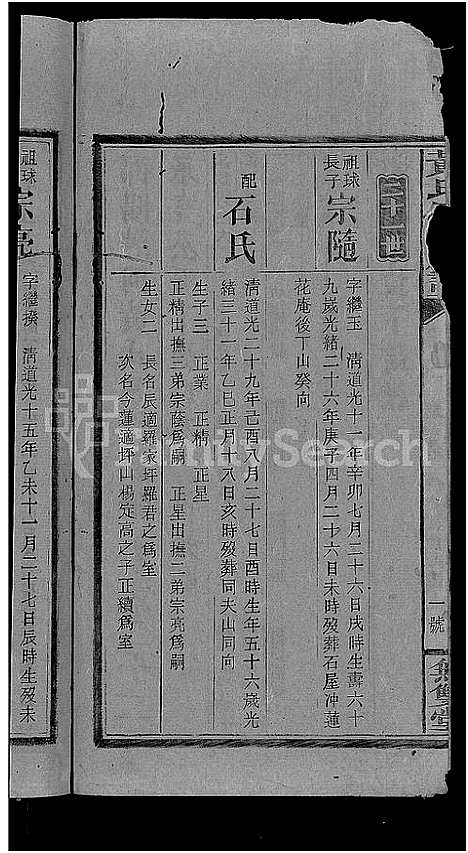 黃氏
一號
無雙堂
三十一世
祖球長子 宗隨 字繼玉 清道光十一年辛卯七月二十六日戌時生壽六十
九歲光緒二十六年庚子四月二十六日未時歿葬石屋冲蓮
花庵後丁山癸向
配 石氏 清道光二十九年己酉八月二十七日酉時生年五十六歲光
緒三十一年乙巳正月十八日亥時歿葬同夫山同向
生子三 正業 正精 正星
正精出撫三弟宗蔭爲嗣 正星出撫二弟宗亮爲嗣
生女二 長名辰適羅家坪羅君之爲室
次名今蓮適坪山楊定高之子正續爲室
祖球 宗亮 字繼揆 清道光十五年乙未十一月二十七日辰時生歿未
FamilySearch